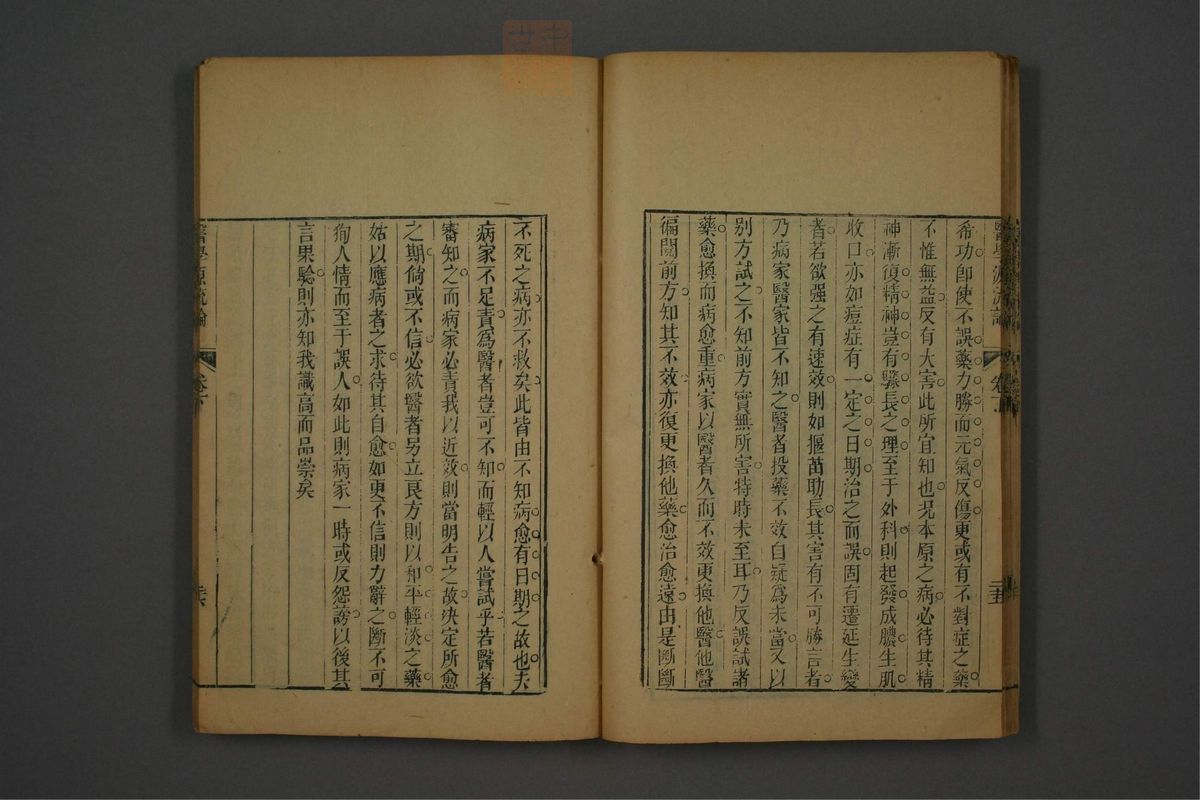 希功卽使不誤藥力勝而元氣反傷更或有不對症之藥
不惟無益反有大害此所宜知也況本原之病必待其精
神漸復精神豈有驟長之理至于外科則起發成膿生肌
收口亦如痘症有一定之日期治之而誤固有遷延生變
者若欲强之有速效則如揠苗助長其害有不可勝言者
乃病家醫家皆不知之醫者投藥不效自疑爲未當又以
别方試之不知前方實無所害特時未至耳乃反誤試諸
藥愈換而病愈重病家以醫者久而不效更換他醫他醫
徧閱前方知其不效亦復更換他藥愈治愈遠由是斷斷
不死之病亦不救矣此皆由不知病愈有日期之故也夫
病家不足責爲醫者豈可不知而輕以人嘗試乎若醫者
審知之而病家必責我以近效則當明告之故決定所愈
之期倘或不信必欲醫者另立良方則以和平輕淡之藥
姑以應病者之求待其自愈如更不信則力辭之斷不可
徇人情而至于誤人如此則病家一時或反怨謗以後其
言果驗則亦知我識高而品崇矣
醫學源流論
卷下